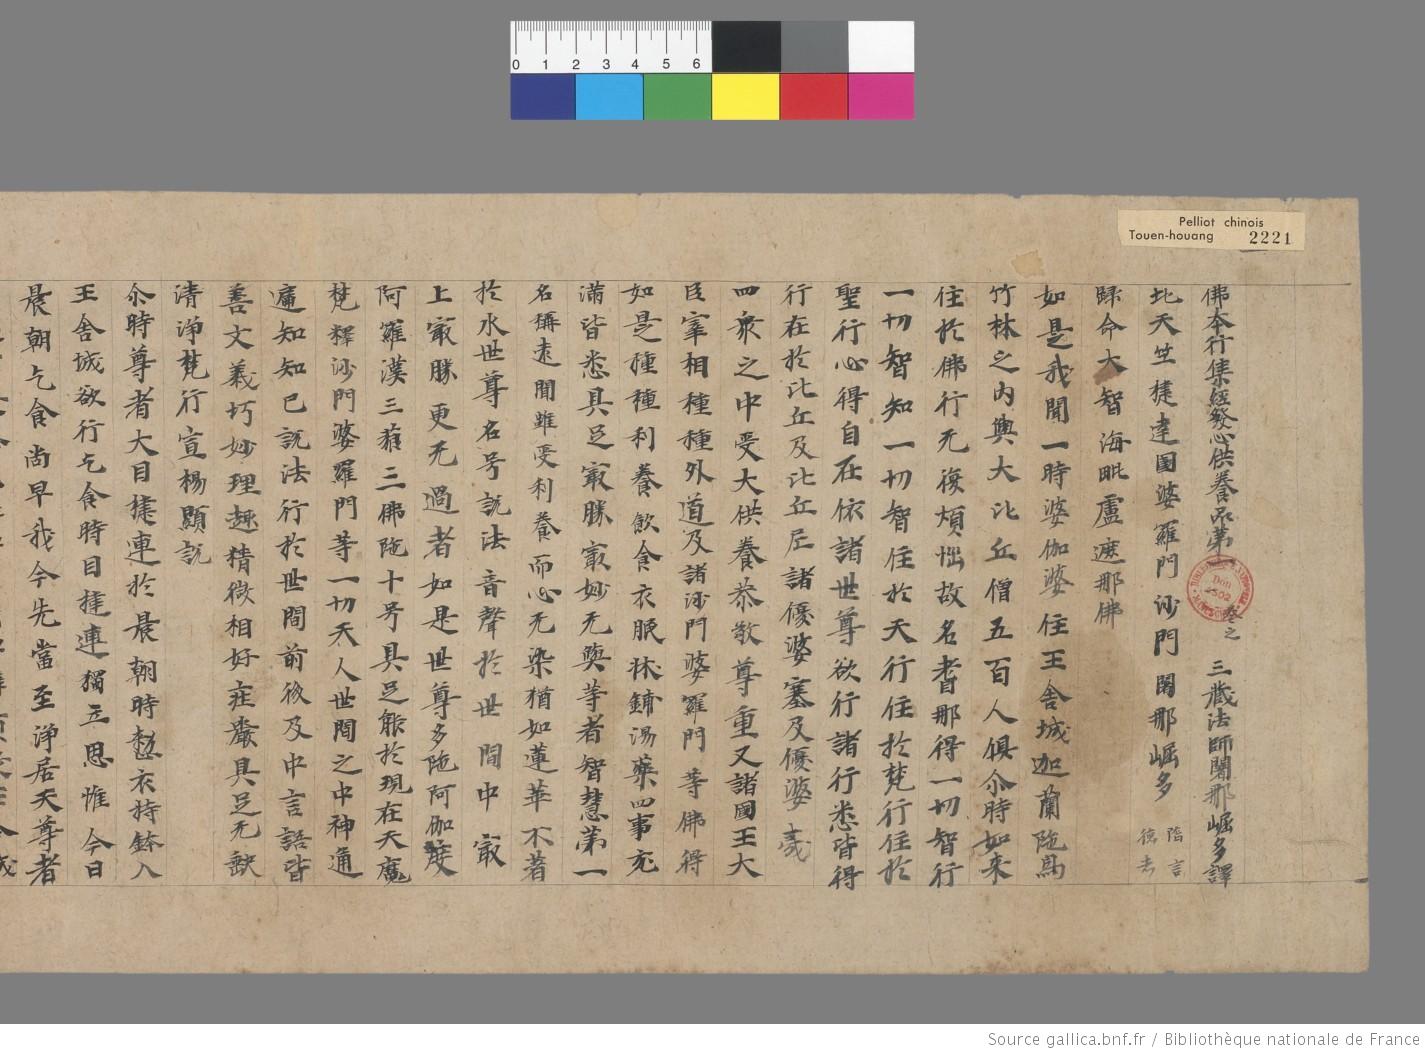 0 1 2 3 4 5 6
Pelliot chinois
Touen-houang 2221
佛本行集經發心供養品第一 卷之 三藏法師闍那崛多譯
北天竺揵達國婆羅門沙門闍那崛多 隋言德志
歸命大智海毗盧遮那佛
如是我聞一時婆伽婆住王舍城迦蘭陁鳥
竹林之內與大比丘僧五百人俱尒時如来
住於佛行无復煩惱故名耆那得一切智行
一切智知一切智住於天行住於梵行住於
聖行心得自在依諸世尊欲行諸行悉皆得
行在於比丘及比丘尼諸優婆塞及優婆夷
四衆之中受大供養恭敬尊重又諸國王大
臣宰相種種外道及諸沙門婆羅門等佛得
如是種種利養飲食衣眠牀鋪湯藥四事充
滿皆悉具足㝡勝㝡妙无與等者智慧第一
名稱遠聞雖受利養而心无染猶如蓮華不著
於水世尊名号說法音聲於世間中㝡
上㝡勝更无過者如是世尊多陁阿伽度
阿羅漢三藐三佛陁十号具足能於現在天魔
梵釋沙門婆羅門等一切天人世間之中神通
遍知知已說法行於世間前後及中言語皆
善文義巧妙理趣精微相好莊嚴具足无缺
清淨梵行宣楊顯說
尒時尊者大目揵連於晨朝時整衣持鉢入
王舍城欲行乞食時目揵連獨立思惟今日
晨朝乞食尚早我今先當至淨居天尊者
Source gallica.bnf.fr / Bibliothèque nationale de France